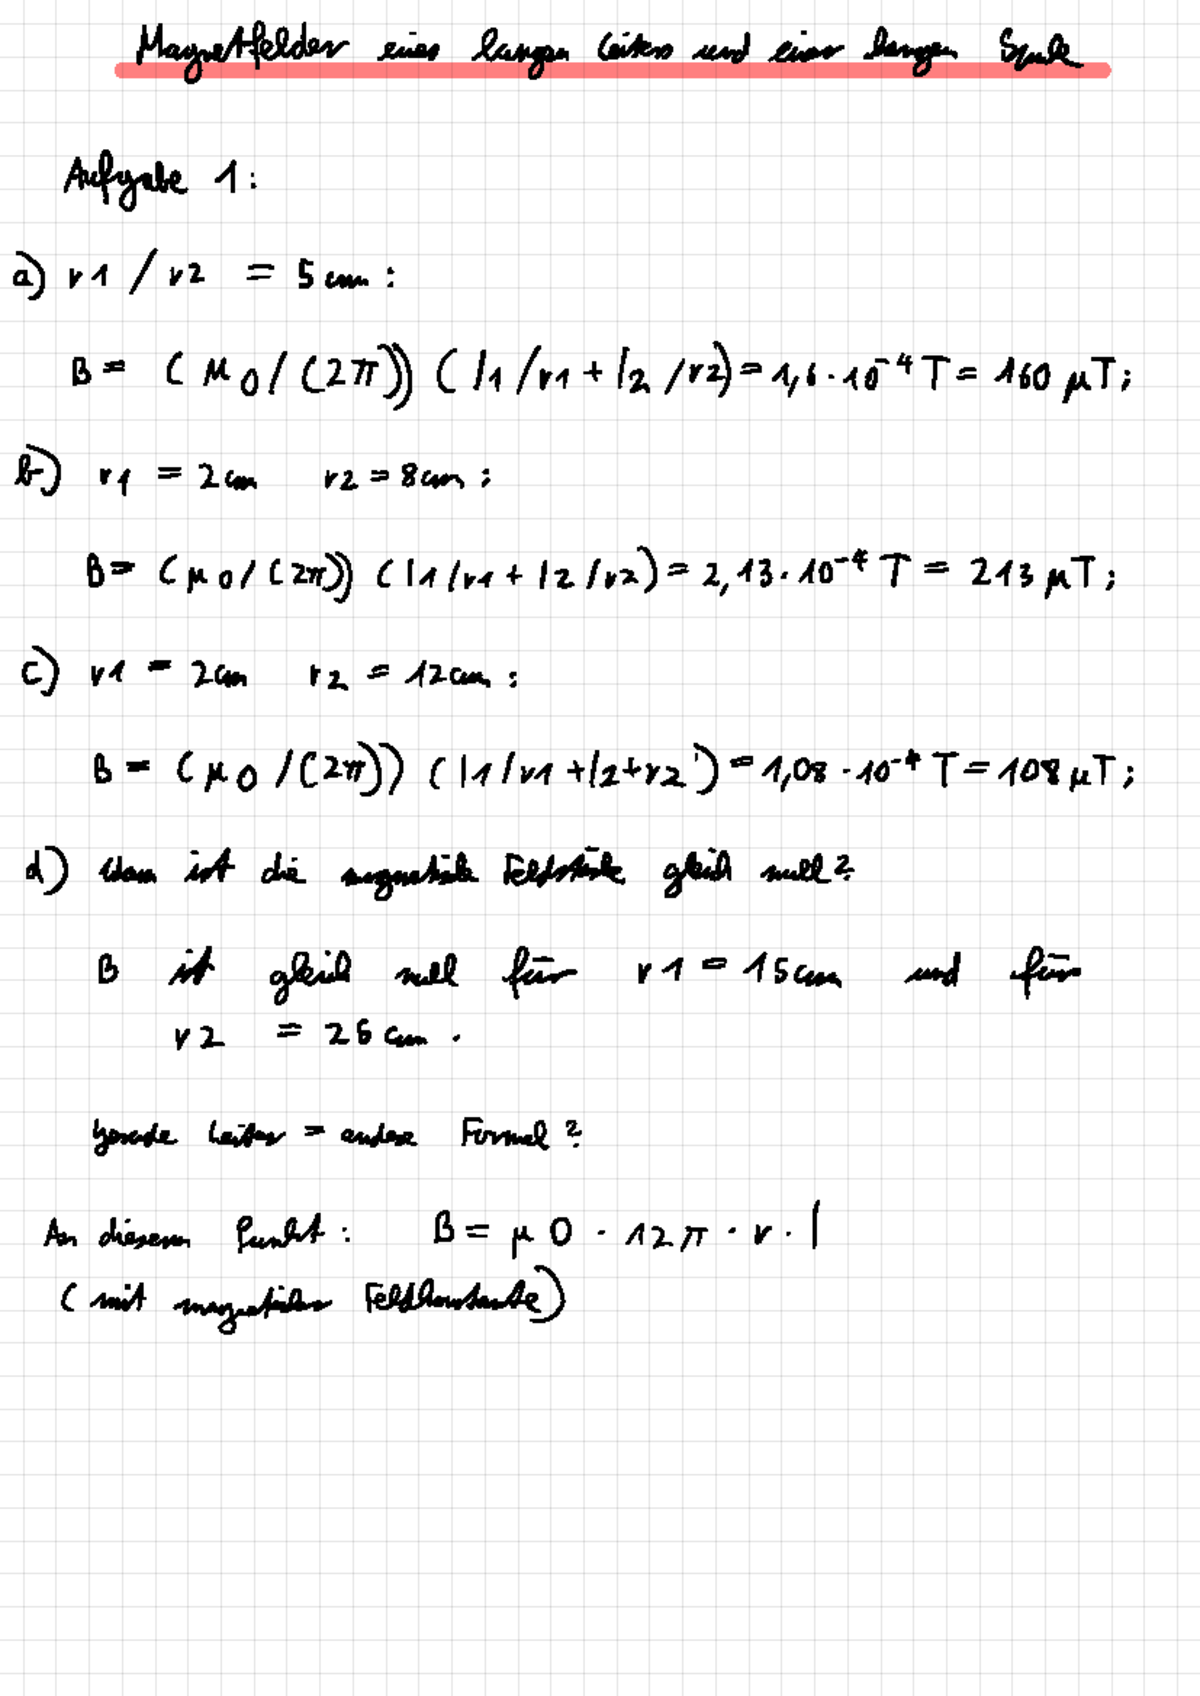 Magnetfelder eines langen Leiters und einer langen Spule
Aufgabe 1:
a) r1 / r2 = 5 cm :
B = ( μ0 / (2π)) ( I1 / r1 + I2 / r2) = 1,6 · 10⁻⁴ T = 160 μT ;
b) r1 = 2 cm r2 = 8 cm ;
B = ( μ0 / (2π)) ( I1 / r1 + I2 / r2) = 2,13 · 10⁻⁴ T = 213 μT ;
c) r1 = 2 cm r2 = 12 cm :
B = ( μ0 / (2π)) ( I1 / r1 + I2 + r2 ) = 1,08 · 10⁻⁴ T = 108 μT ;
d) Wann ist die magnetische Feldstärke gleich null?
B ist gleich null für r1 = 15 cm und für
r2 = 25 cm .
gerade Leiter = andere Formel ?
An diesem Punkt : B = μ0 · 12π · r · I
( mit magnetischer Feldkonstante)